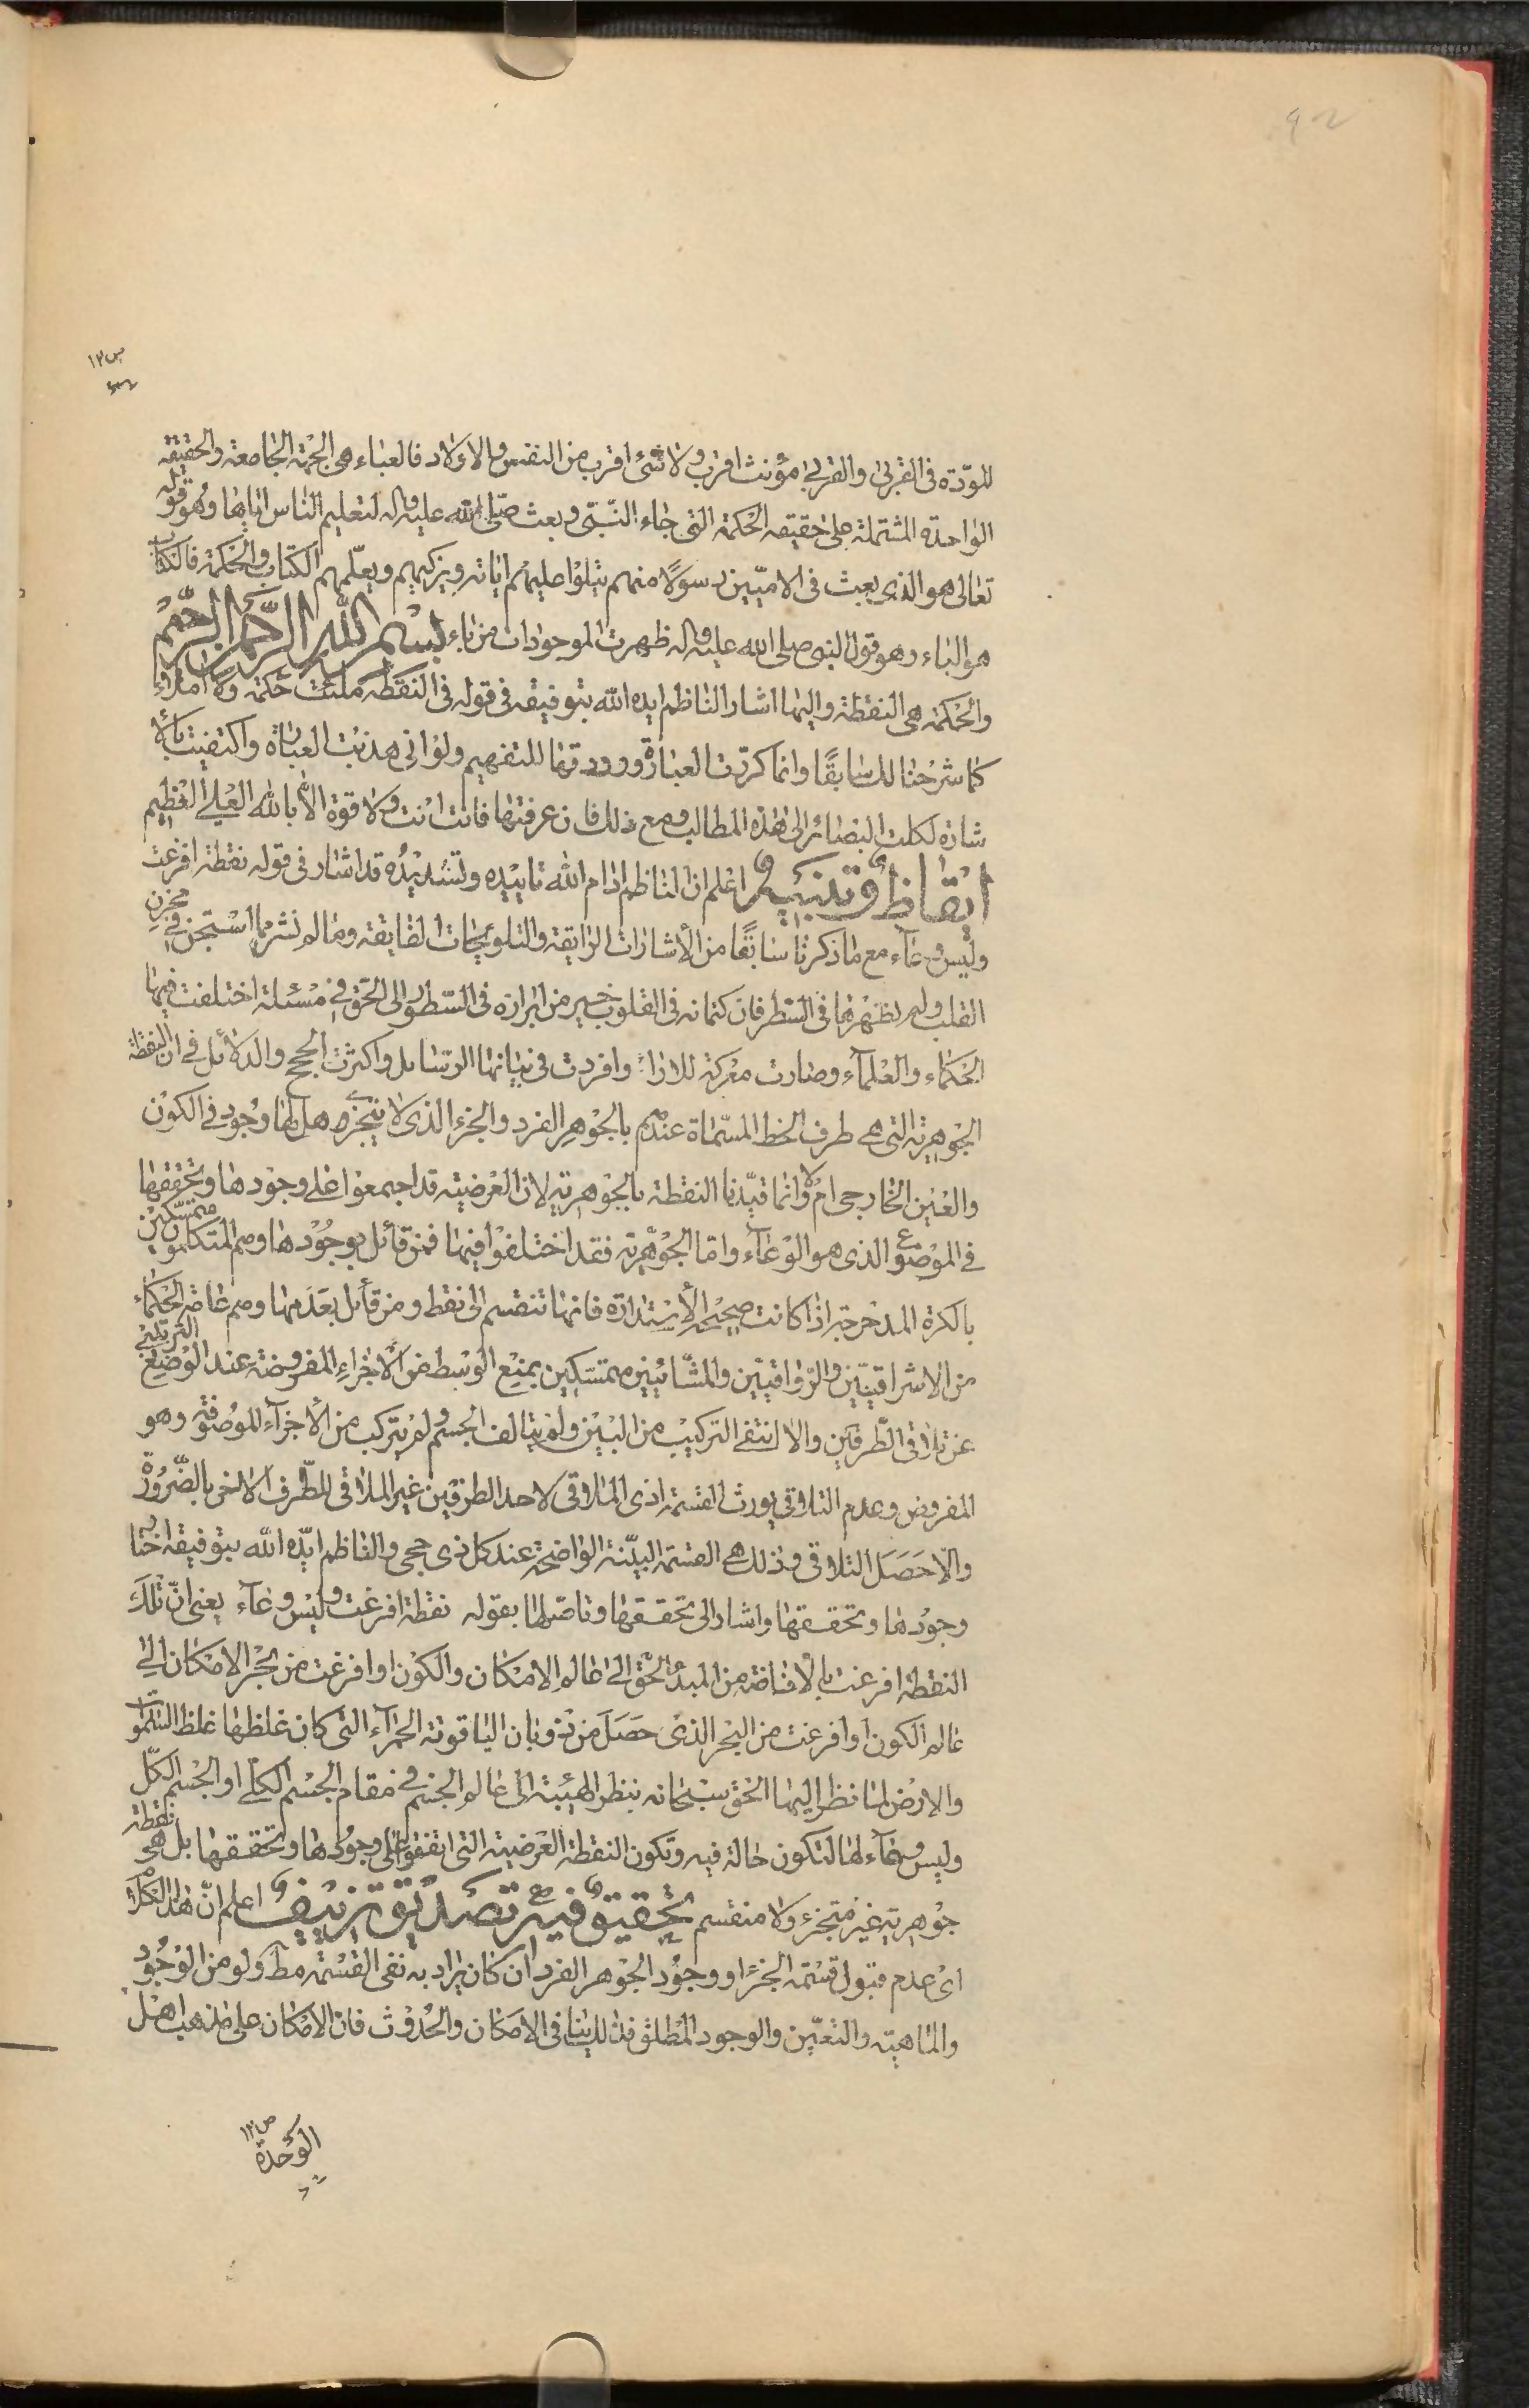 ٩٢
ص١٢
للمودّة فى القربىٰ والقربىٰ مؤنث اقرب ولا شئ اقرب من النفس والاولاد فالعباء هى الجهة الجامعة والحقيقة
الواحدة المشتملة على حقيقة الحكمة التى جاء النّبىّ وبعث صلّى الله عليه واله لتعليم الناس اياها وهو قوله
تعالى هو الذى بعث فى الاميّين رسولًا منهم يتلوا عليهم اياته ويزكيهم ويعلّمهم الكتاب والحكمة فالكتاب
هو الباء وهو قول النبى صلى الله عليه واله ظهرت الموجودات من باء بسم الله الرّحمن الرّحيم
والحكمة هى النقطة واليها اشار الناظم ايده الله بتوفيقه فى قوله فى النقطة ملئت حكمة ولا املاؤ
كما شرحنا لك سابقًا وانما كررت العبارة ورددتها للتفهيم ولو انى هذبت العبارة واكتفيت بالا
شارة لكلت البصائر الى هذه المطالب ومع ذلك فان عرفتها فانت انت ولا قوة الا بالله العلى العظيم
ايقاظ وتنبيه اعلم ان الناظم ادام الله تاييده وتسديده قد اشار فى قوله نقطة افرغت
وليس وعاء مع ما ذكرنا سابقًا من الأشارات الرايقة والتلويحات الفايقة وما لم نشر مما استجن فى مخزن
القلب ولم نظهرها فى السطر فان كتمانه فى القلوب خير من ابرازه فى السّطور الى الحق فى مسئلة اختلفت فيها
الحكماء والعلماء وصارت معركة للاراء وافردت فى بيانها الرسايل واكثرت الحجج والدلائل فى ان النقطة
الجوهرية التى هى طرف الخط المسمّاة عندهم بالجوهر الفرد والجزء الذى لا يتجزى هل لها وجود فى الكون
والعين الخارجى ام لا وانما قيّدنا النقطة بالجوهرية لان العرضية قد اجمعوا على وجودها وتحققها
فى الموضوع الذى هو الوعاء واما الجوهرية فقد اختلفوا فيها فمن قائل بوجودها وهم المتكلمون متمسكين
بالكرة المدحرجة اذا كانت صحيحة الأستدارة فانها تنقسم الى نقط ومن قائل بعدمها وهم عامة الحكماء
من الاشراقيّين والرّواقيّين والمشّائيّين متمسّكين بمنع الوسط من الأجزاء المفروضة عند الوضع الترتيبى
عن تلاقى الطّرفين والا لنتفى التركيب من البين ولم يتالف الجسم ولم يتركب من الأجزاء الموصوفة وهو
المفروض وعدم التلاقى يورث القسمة اذى الملاقى لاحد الطرفين غير الملاقى للطّرف الاخر بالضّرورة
والّا حصل التلاقى وذلك هى القسمة البيّنة الواضحة عند كل ذى حجى والناظم ايّده الله بتوفيقه اختار
وجودها وتحققها واشار الى تحققها وتاصّلها بقوله نقطة افرغت وليس وعاء يعنى انّ تلك
النقطة افرغت بالأفاضة من المبدء الحق الى عالم الامكان والكون او افرغت من بحر الامكان الى
عالم الكون او افرغت من البحر الذى حصل من ذوبان الياقوتة الحمراء التى كان غلظها غلظ السّموات
والارض لما نظر اليها الحق سبحانه بنظر الهيبة الى عالم الجسم فى مقام الجسم الكلى او الجسم الكلّ
وليس وعاء لها لتكون حالة فيه وتكون النقطة العرضية التى اتفقوا على وجودها وتحققها بل هى نقطة
جوهرية غير متجزء ولا منقسم تحقيق فيه تصديق تزييف اعلم انّ هذا الكلام
اى عدم قبول قسمة الجزء او وجود الجوهر الفرد ان كان يراد به نفى القسمة مط ولو من الوجود
والماهية والتعيّن والوجود المطلق فذلك ينافى الامكان والحدوث فان الامكان على مذهب اهل
ص١٢
الوحدة